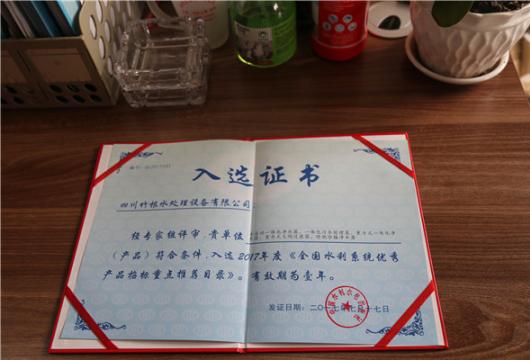 入选证书
四川竹根水处理设备有限公司:
经专家组评审,贵单位
(产品)符合条件,入选2017年度《全国水利系统优秀
产品招标重点推荐目录》。有效期为壹年。
发证日期:二〇一七年七月十七日